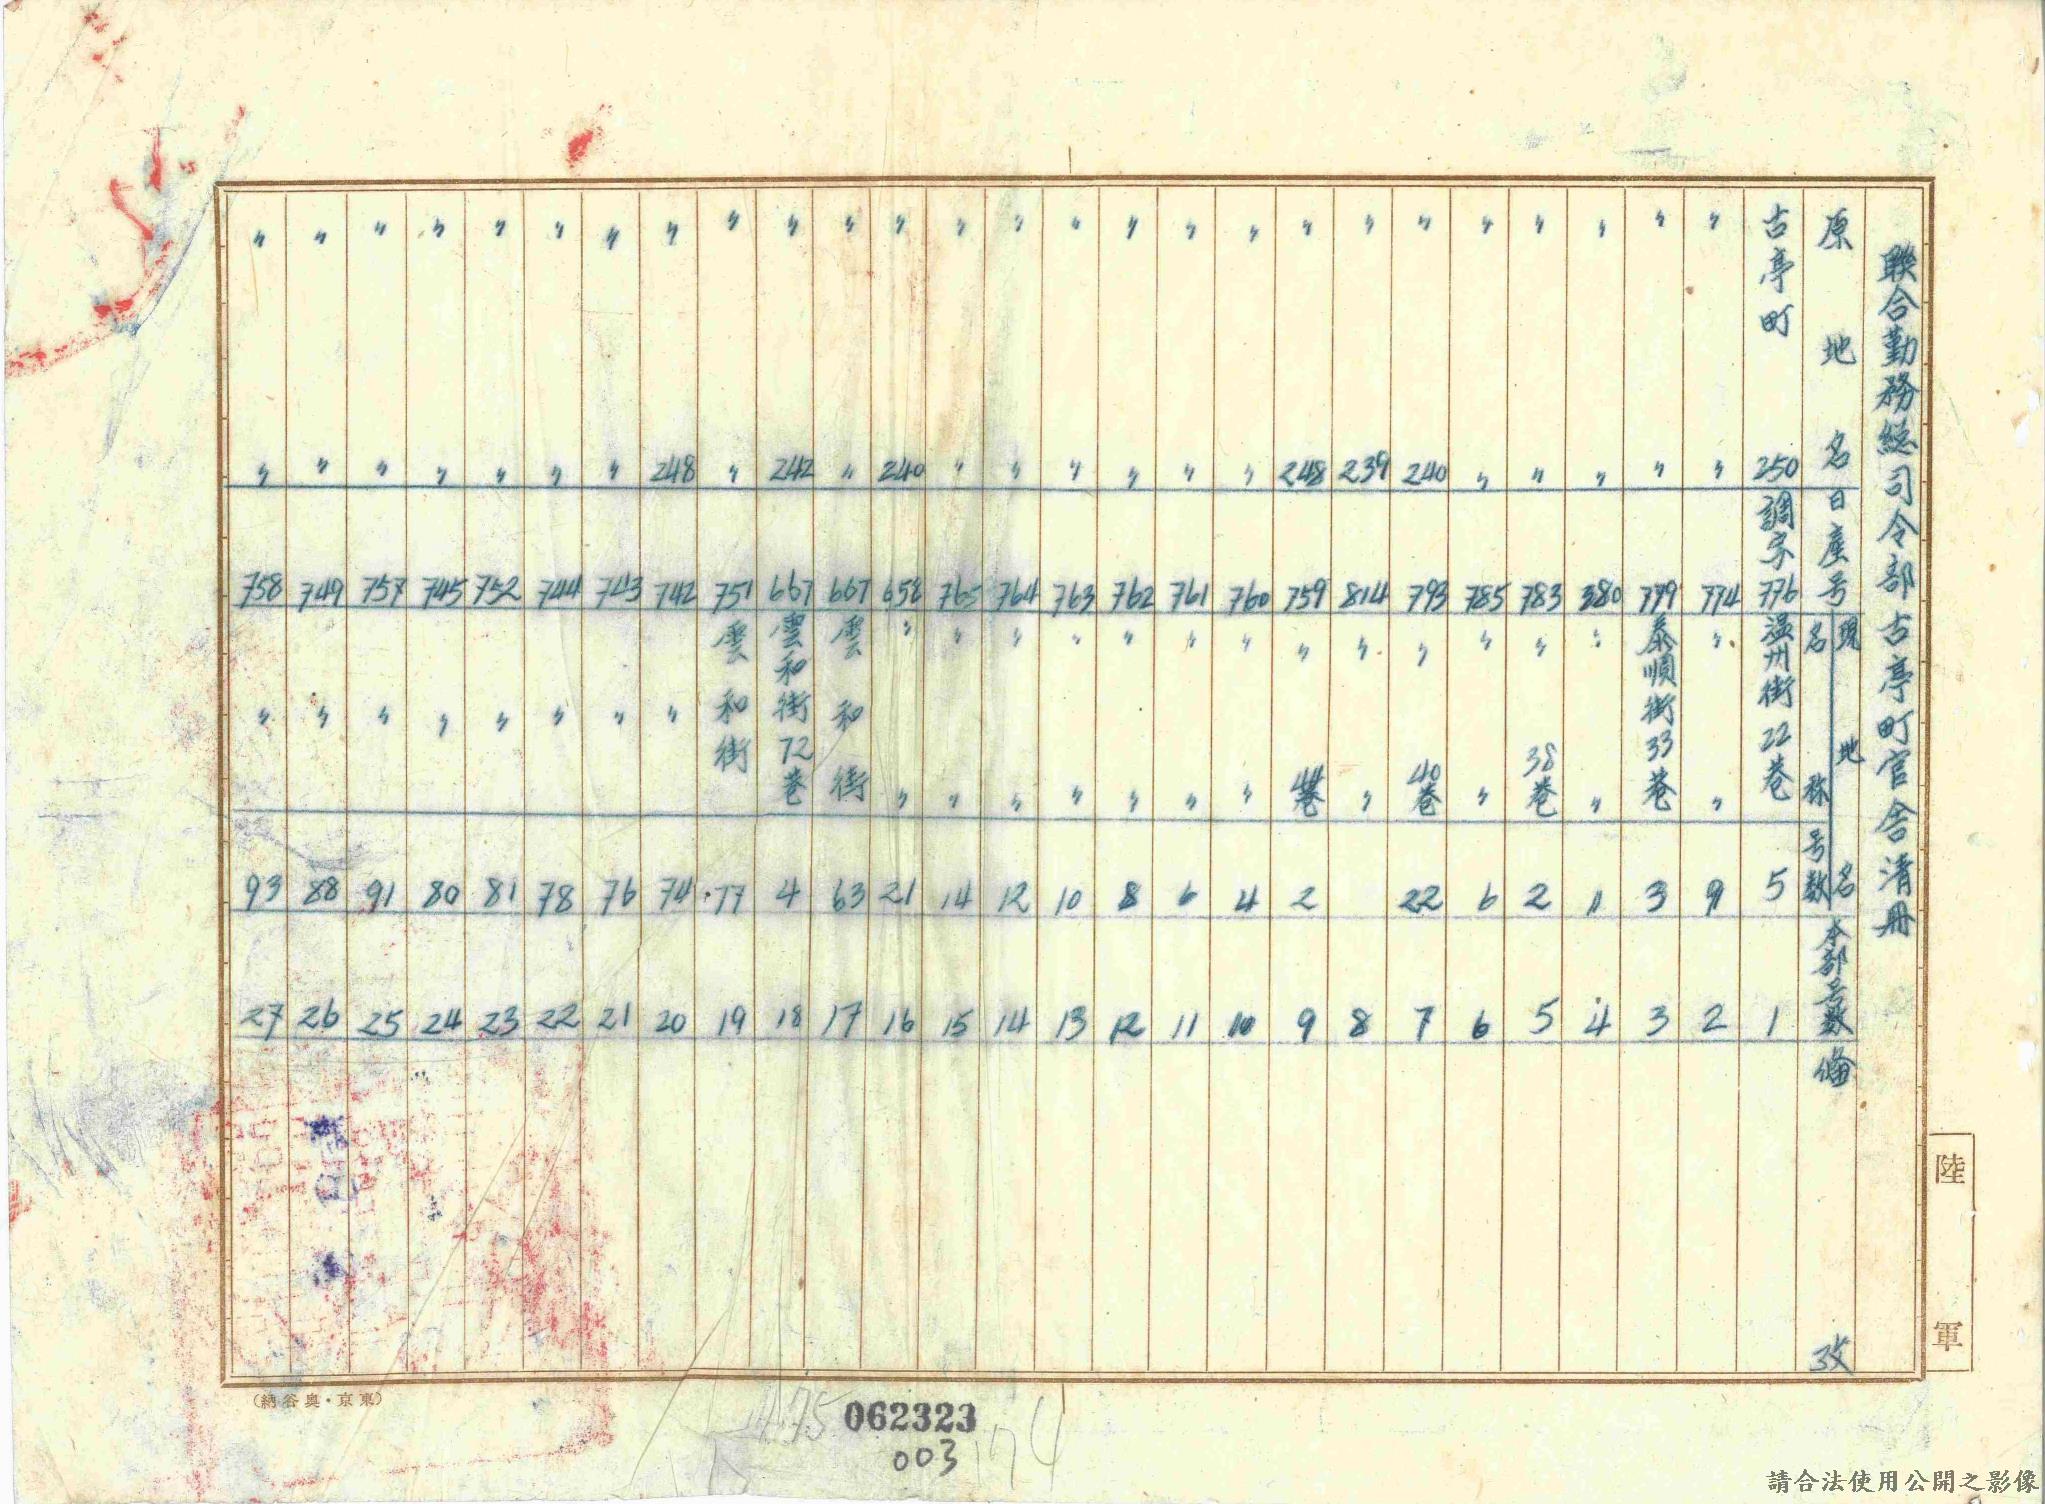 聯合勤務総司令部古亭町官舍清冊
原地名 日産号 現地名 名称 号数 本部号数 備攷
古亭町 250 調字776 温州街22巷 5 1
〃 〃 774 〃 〃 9 2
〃 〃 779 泰順街33巷 3 3
〃 〃 380 〃 〃 〃 4
〃 〃 783 〃 38巷 2 5
〃 〃 785 〃 〃 6 6
〃 240 793 〃 40巷 22 7
〃 239 814 〃 〃 8
〃 248 759 〃 44巷 2 9
〃 〃 760 〃 〃 4 10
〃 〃 761 〃 〃 6 11
〃 〃 762 〃 〃 8 12
〃 〃 763 〃 〃 10 13
〃 〃 764 〃 〃 12 14
〃 〃 765 〃 〃 14 15
〃 240 658 〃 〃 21 16
〃 〃 667 雲和街 63 17
〃 242 667 雲和街72巷 4 18
〃 〃 751 雲和街 77 19
〃 248 742 〃 74 20
〃 〃 743 〃 76 21
〃 〃 744 〃 78 22
〃 〃 752 〃 81 23
〃 〃 745 〃 80 24
〃 〃 757 〃 91 25
〃 〃 749 〃 88 26
〃 〃 758 〃 93 27
陸軍
(納谷奥・京東)
062323
003
174
175
請合法使用公開之影像